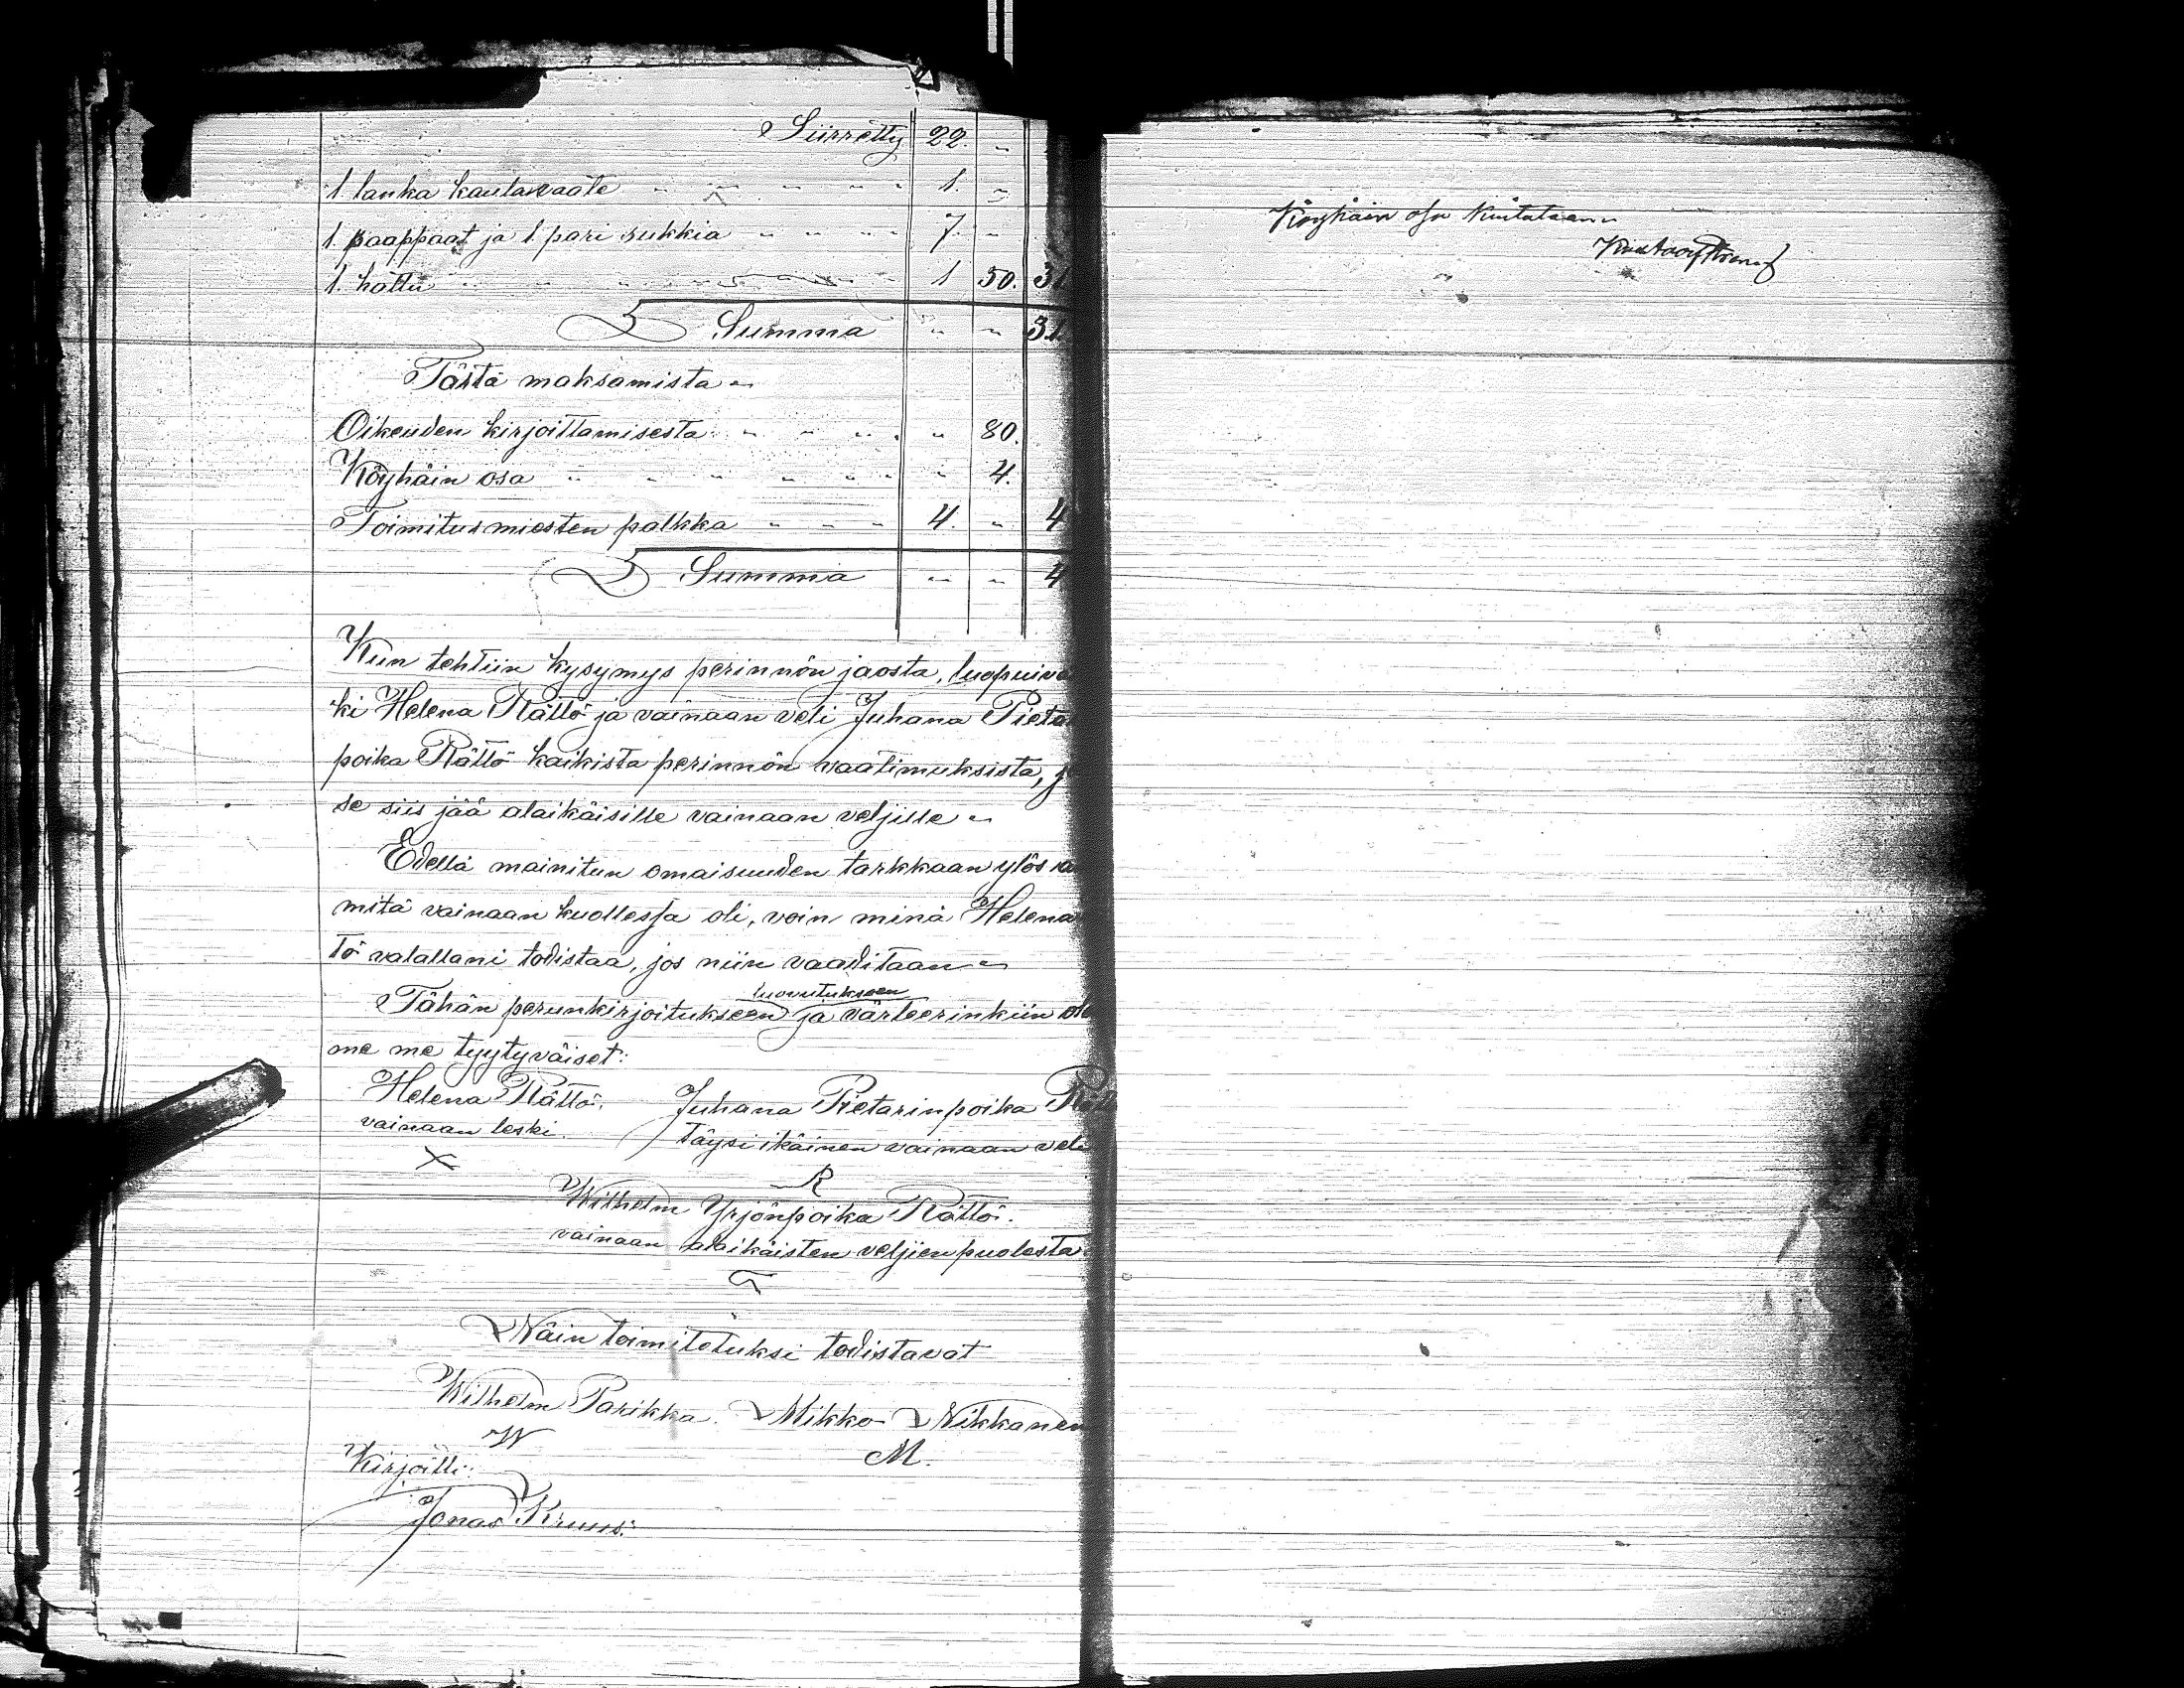 Siirretty 22. "
1. lanka kaulavaate " " " " " 1. "
1. paappaat ja 1. pari sukkia " " " 7. "
1. hattu " " " " " " 1 50. 31
Summa " " 31.
Tästä maksamista "
Oikeuden kirjoittamisesta " " " " 80.
Köyhäin osa " " " " " " 4.
Toimitusmiesten palkka " " " 4. " 4
Summa " " 4
Kun tehtiin kysymys perinnön jaosta, luopuiva
ki Helena Rättö ja vainaan veli Juhana Pieta
poika Rättö kaikista perinnön vaatimuksista, j
se siis jää alaikäisille vainaan veljille "
Edellä mainitun omaisuuden tarkkaan ylös
mitä vainaan kuollessa oli, voin minä Helena
tö valallani todistaa, jos niin vaaditaan "
luovutukseen
Tähän perunkirjoitukseen ja värteerinkiin ole
me me tyytyväiset:
Helena Rättö. Juhana Pietarinpoika Rätt
vainaan leski. täysi ikäinen vainaan veli
X R
Wilhelm Yrjönpoika Rättö.
vainaan alaikäisten veljien puolesta
Näin toimitetuksi todistavat
Wilhelm Parikka. Mikko Nikkanen
W M.
Kirjoitti:
Jonas Kruus.
Köyhäin osa kuitataan "